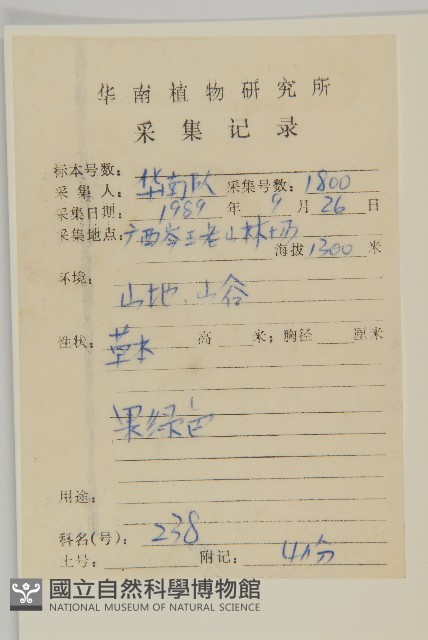 华南植物研究所
采集记录
标本号数：
采集人：华南队 采集号数：1800
采集日期：1989年9月26日
采集地点：广西岑王老山林场
海拔1300米
环境：
山地、山谷
性状：草本 高 米；胸径 厘米
果绿色
用途：
科名(号)：238
土号： 附记：4份
國立自然科學博物館
NATIONAL MUSEUM OF NATURAL SCIENCE